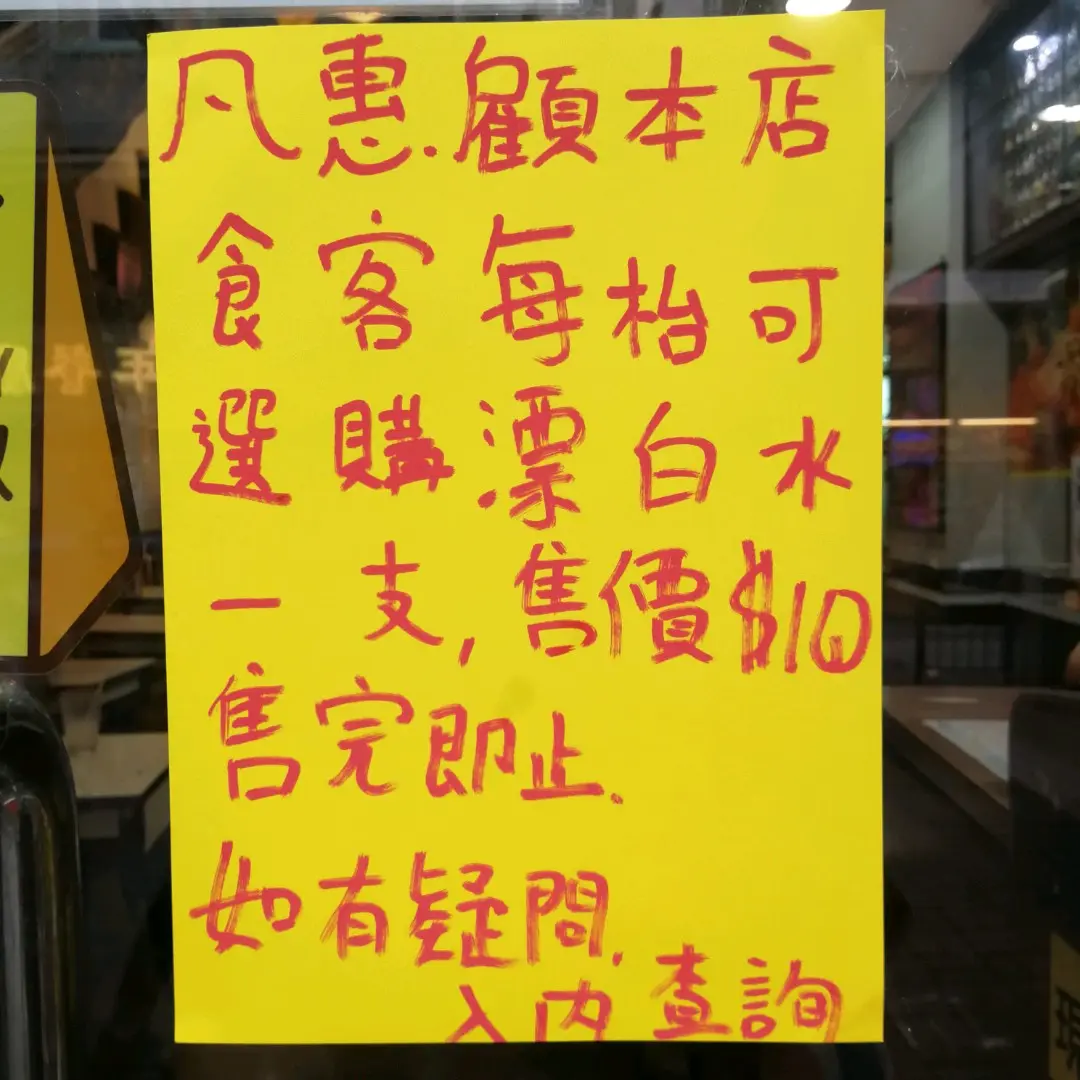 凡惠顧本店
食客每枱可
選購漂白水
一支,售價$10
售完即止.
如有疑問,
入內查詢